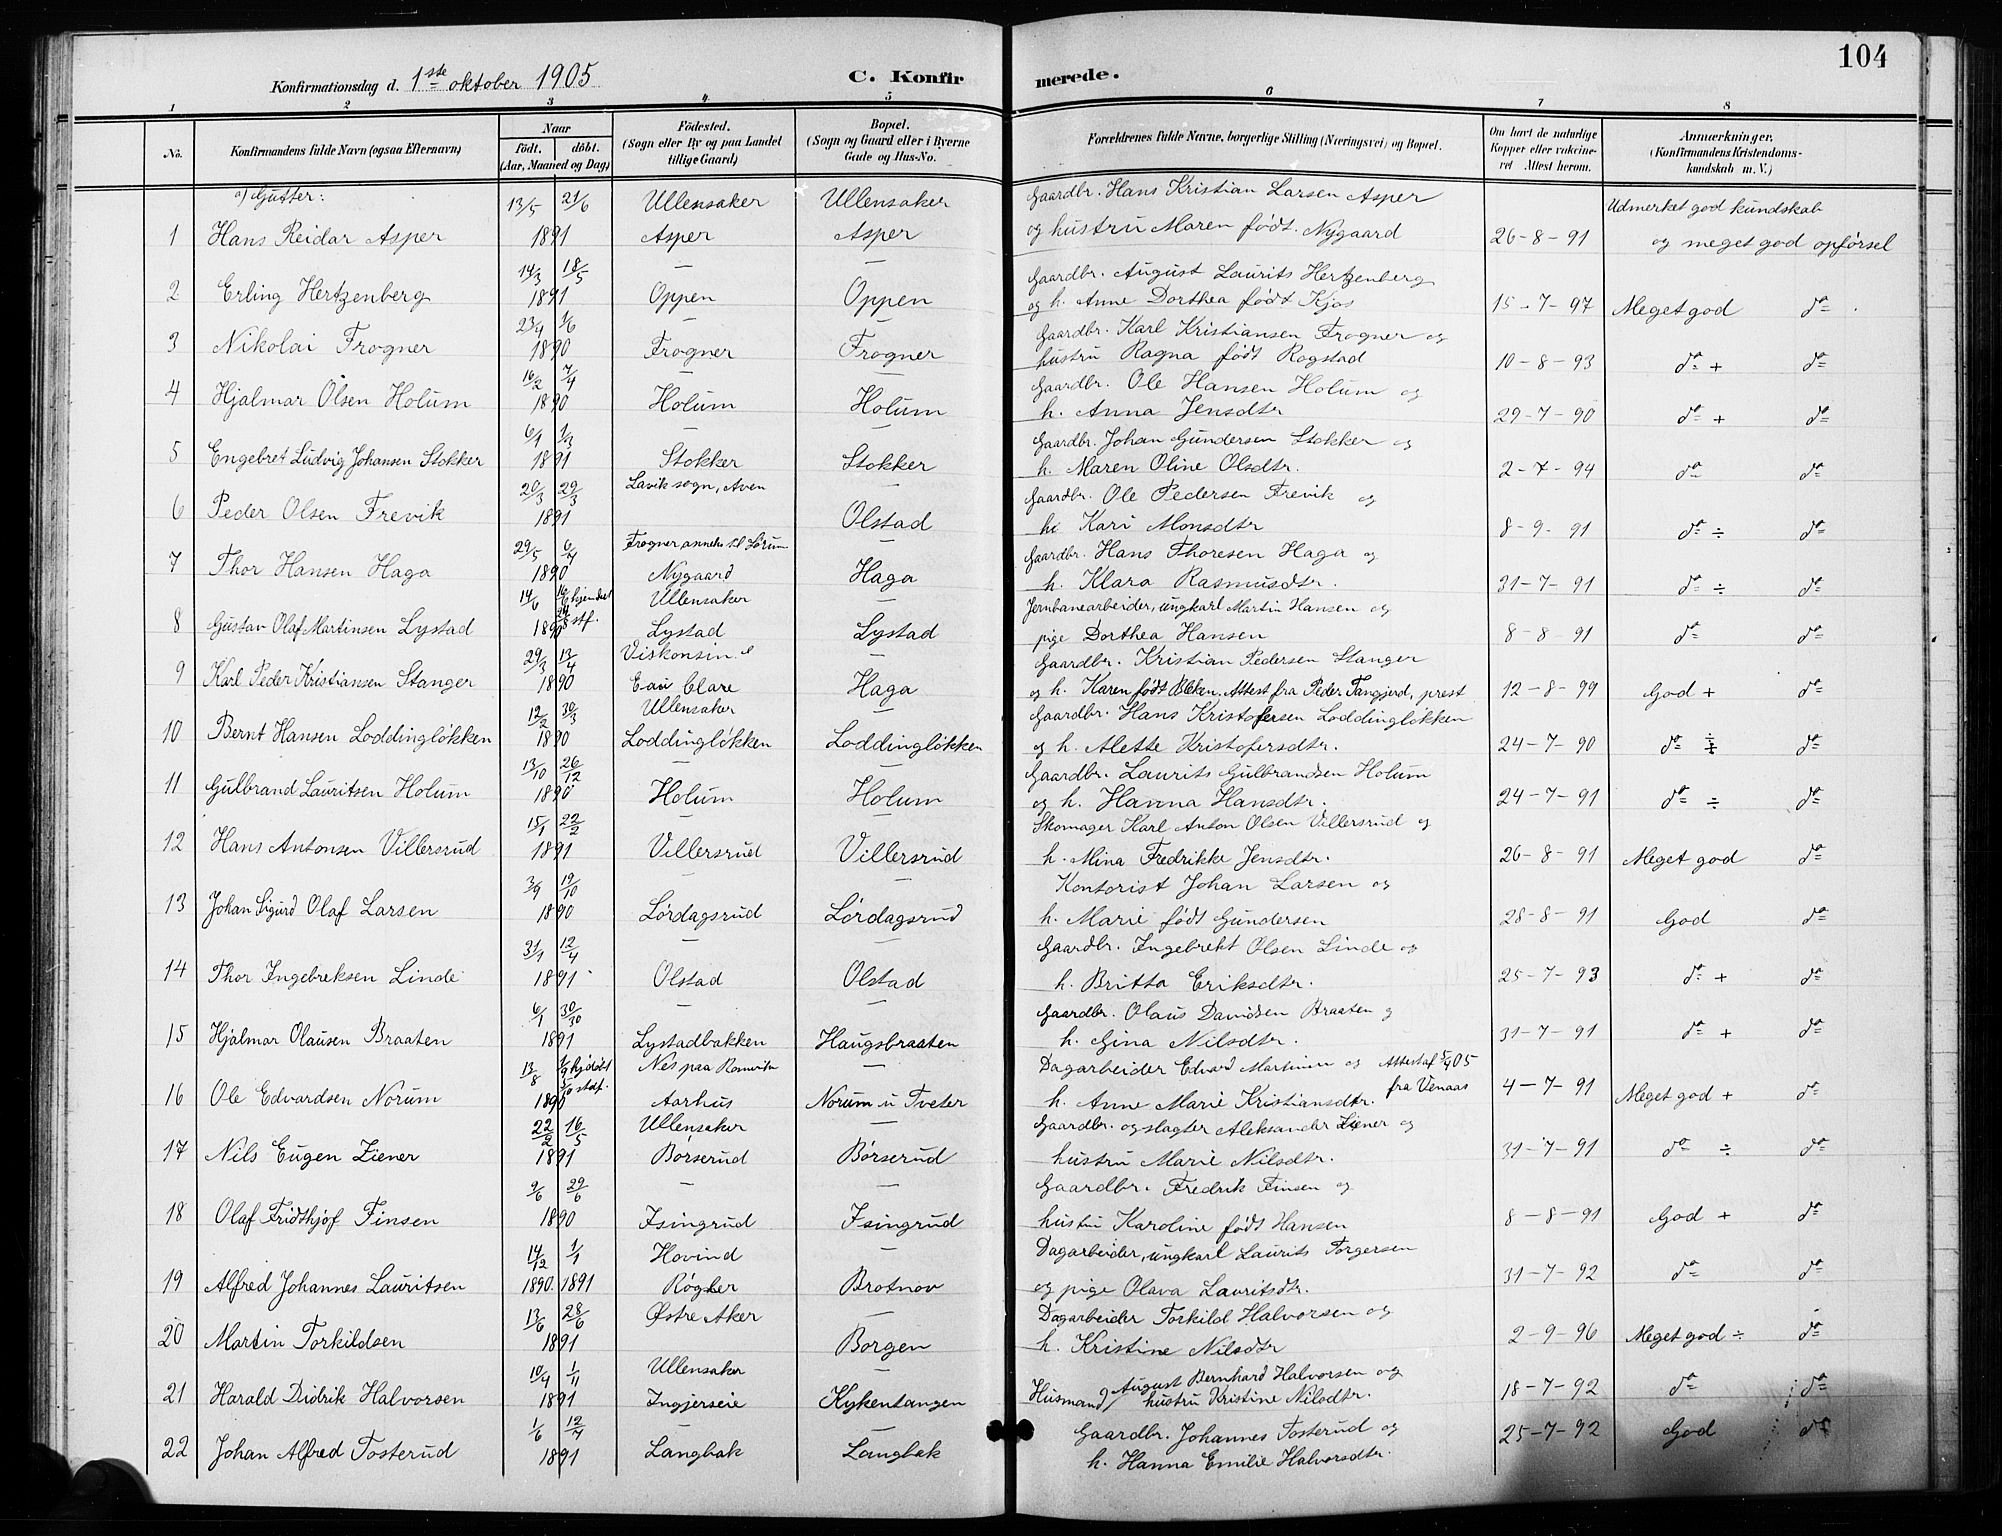 104
Konfirmationsdag d. 1ste oktober 1905. C. Konfirmerede.
1 2 3 4 5 6 7 8
No. Konfirmandens fulde Navn (ogsaa Efternavn) Naar født. døbt. (Aar, Maaned og Dag) Fødested. (Sogn eller By og paa Landet tillige Gaard) Bopæl. (Sogn og Gaard eller i Byerne Gade og Hus-No. Forældrenes fulde Navne, borgerlige Stilling (Næringsvei) og Bopæl. Om havt de naturlige Kopper eller vaccineret Attest herom. Anmærkninger, (Konfirmandens Kristendomskundskab m. V.)
a) Gutter: 13/5 21/6 Ullensaker Ullensaker Gaardbr. Hans Kristian Larsen Asper Udmerket god kundskab
1 Hans Reidar Asper 1891 Asper Asper og hustru Maren født Nygaard 26-8-91 og meget god opførsel
14/3 18/5 — — Gaardbr. August Laurits Hertzenberg
2 Erling Hertzenberg 1891 Oppen Oppen og h. Anne Dorthea født Kjos 15-7-97 Meget god do
23/4 1/6 — — Gaardbr. Karl Kristiansen Frogner og
3 Nikolai Frogner 1890 Frogner Frogner hustru Ragna født Rogstad 10-8-93 do + do
16/2 7/4 — — Gaardbr. Ole Hansen Holum og
4 Hjalmar Olsen Holum 1890 Holum Holum h. Anna Jensdtr 29-7-90 do + do
6/1 1/3 — — Gaardbr. Johan Gundersen Stokker og
5 Engebret Ludvig Johansen Stokker 1891 Stokker Stokker h. Maren Oline Olsdtr. 2-7-94 do do
20/3 29/3 Lavik sogn, Aven — Gaardbr. Ole Pedersen Frevik og
6 Peder Olsen Frevik 1891 Olstad h. Kari Monsdtr 8-9-91 do ÷ do
29/5 6/7 Frogner, anneks til Sørum — Gaardbr. Hans Thoresen Haga og
7 Thor Hansen Haga 1890 Nygaard Haga h. Klara Rasmusdtr. 31-7-91 do ÷ do
14/6 hjemdøbt Ullensaker — Jernbanearbeider, ungkarl Martin Hansen og
8 Gustav Olaf Martinsen Lystad 1890 stf. Lystad Lystad pige Dorthea Hansen 8-8-91 do do
29/3 13/4 Viskonsin — Gaardbr. Kristian Pedersen Stanger
9 Karl Peder Kristiansen Stanger 1890 Eau Clare Haga og h. Karen født Bleken. Attest fra Peder Tangjerd, prest 12-8-99 God + do
12/2 30/3 Ullensaker — Gaardbr. Hans Kristofersen Loddingløkken
10 Bernt Hansen Loddingløkken 1890 Loddingløkken Loddingløkken og h. Alette Kristofersdtr. 24-7-90 do do
13/10 26/12 — — Gaardbr. Laurits Gulbrandsen Holum
11 Gulbrand Lauritsen Holum 1890 Holum Holum og h. Hanna Hansdtr. 24-7-91 do ÷ do
15/1 22/2 — — Skomager Karl Anton Olsen Villersrud og
12 Hans Antonsen Villersrud 1891 Villersrud Villersrud h. Mina Fredrikke Jensdtr. 26-8-91 Meget god do
3/9 19/10 — — Kontorist Johan Larsen og
13 Johan Sigurd Olaf Larsen 1890 Lørdagsrud Lørdagsrud h. Marie født Gundersen 28-8-91 God do
31/1 12/4 — — Gaardbr. Ingebrekt Olsen Linde og
14 Thor Ingebreksen Linde 1891 Olstad Olstad h. Britta Eriksdtr. 25-7-93 do + do
6/1 30/30 — — Gaardbr. Olaus Davidsen Braaten og
15 Hjalmar Olausen Braaten 1891 Lystadbakken Haugsbraaten h. Gina Nilsdtr. 31-7-91 do + do
13/8 Nes paa Romerike — Dagarbeider Edvard Martinsen og Attest af 5/4 05
16 Ole Edvardsen Norum 1890 Aarhus Norum u Tveter h. Anne Marie Kristiansdtr. fra Venaas 4-7-91 Meget god + do
22/2 16/5 Ullensaker — Gaardbr. og slagter Aleksander Ziener og
17 Nils Eugen Ziener 1891 Børserud Børserud hustru Marie Nilsdtr. 31-7-91 do ÷ do
9/6 29/6 — — Gaardbr. Fredrik Finsen og
18 Olaf Fridthjof Finsen 1890 Isingrud Isingrud hustru Karoline født Hansen 8-8-91 God + do
14/12 1/1 Hovind — Dagarbeider, ungkarl Laurits Torgersen
19 Alfred Johannes Lauritsen 1890. 1891 Røgler Brotnov og pige Olava Lauritsdtr. 31-7-92 do do
13/6 28/6 Østre Aker — Dagarbeider Torkild Halvorsen og
20 Martin Torkildsen 1891 Borgen h. Kristine Nilsdtr 2-9-96 Meget god ÷ do
10/4 1/11 Ullensaker — August Bernhard Halvorsen og
21 Harald Didrik Halvorsen 1891 Ingjerseie Kykentangen Husmand hustru Kristine Nilsdtr. 18-7-92 do do
1/6 12/7 — — Gaardbr. Johannes Tosterud og
22 Johan Alfred Tosterud 1891 Langbak Langbak h. Hanna Emilie Halvorsdtr 25-7-92 God do